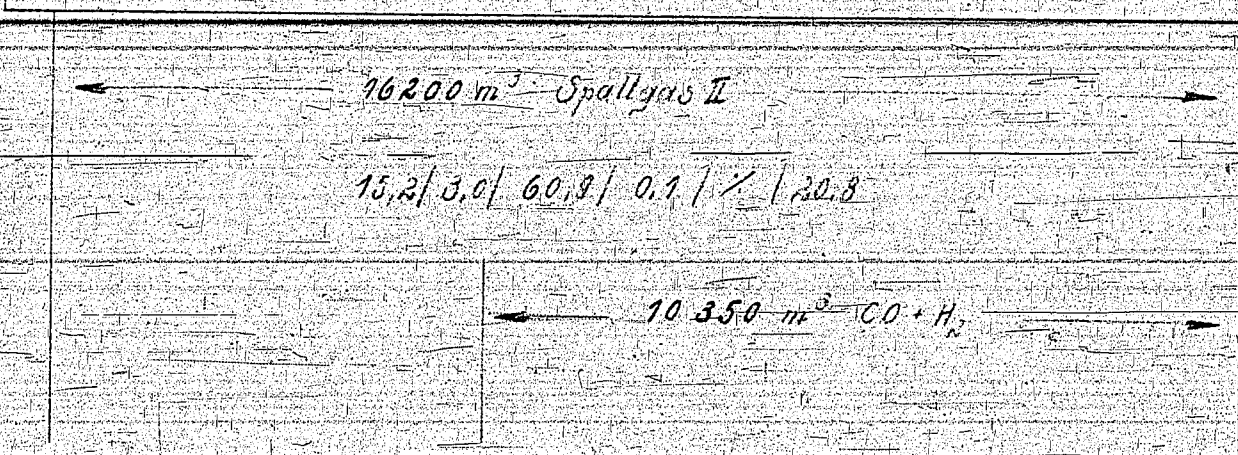 16200 m³ Spaltgas II
15,2 / 3,0 / 60,9 / 0,1 / ٪ / 20,8
10 350 m³ CO + H₂